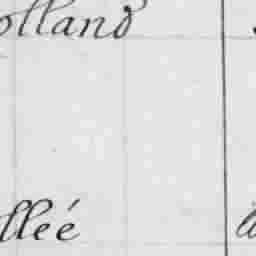 olland
lleé